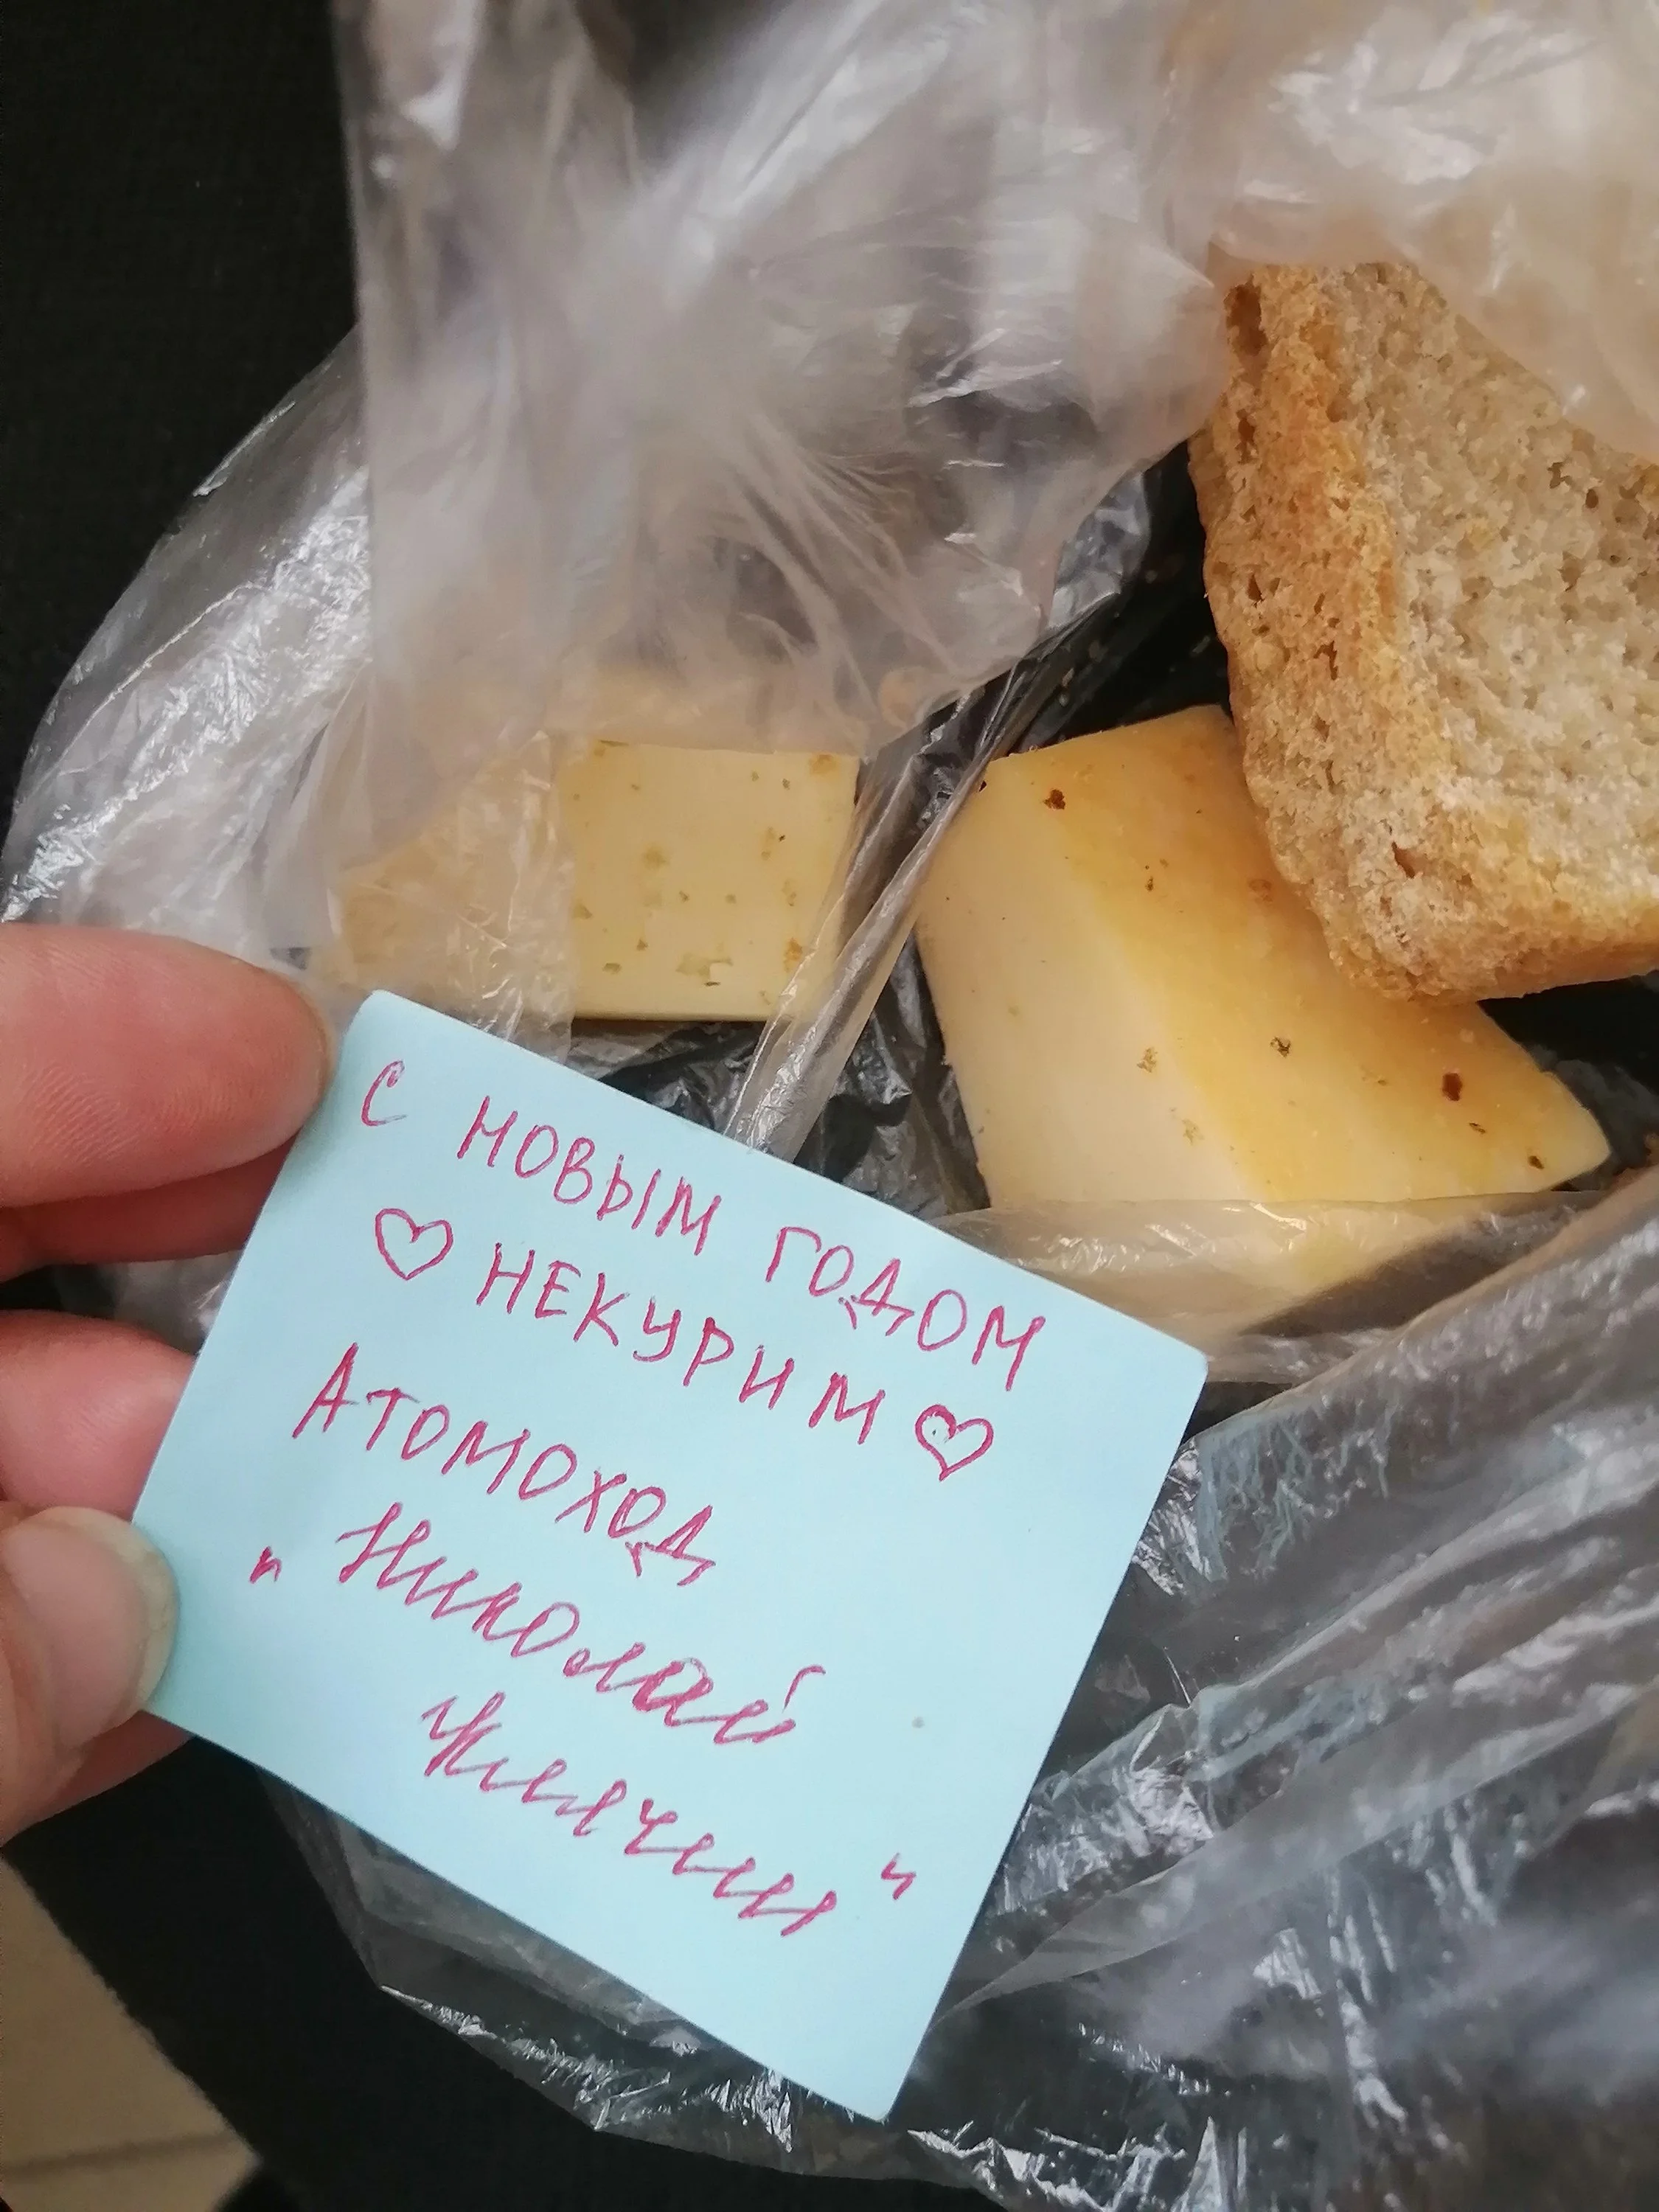 С НОВЫМ ГОДОМ
♡ НЕКУРИМ ♡
АТОМОХОД
„ Николай
Жилчин "